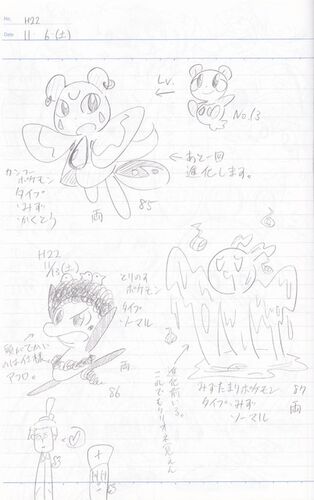 No. H22
Date 11 6 (土)
Lv.
No.13
←あと一回
進化します。
カンフー
ポケモン
タイプ
みず
かくとう
雨
85
H22
11/13(土)
とりのす
ポケモン
タイプ
ノーマル
頭がでかい
のは仕様
アフロ。
雨
86
進化前いる。
みずたまりポケモン
タイプ:みず
ノーマル
87
雨